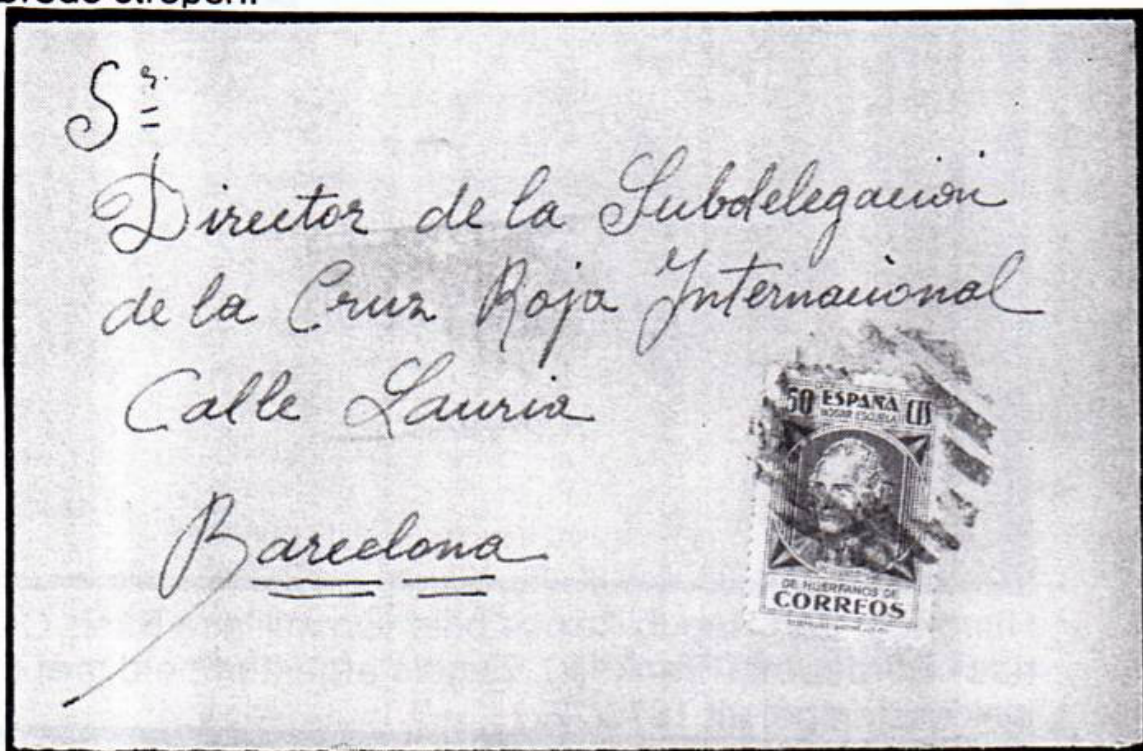 Sr.
Director de la Subdelegacion
de la Cruz Roja Internacional
Calle Lauria
Barcelona
50 ESPAÑA CTS
HOGAR ESCUELA
DE HUERFANOS DE
CORREOS